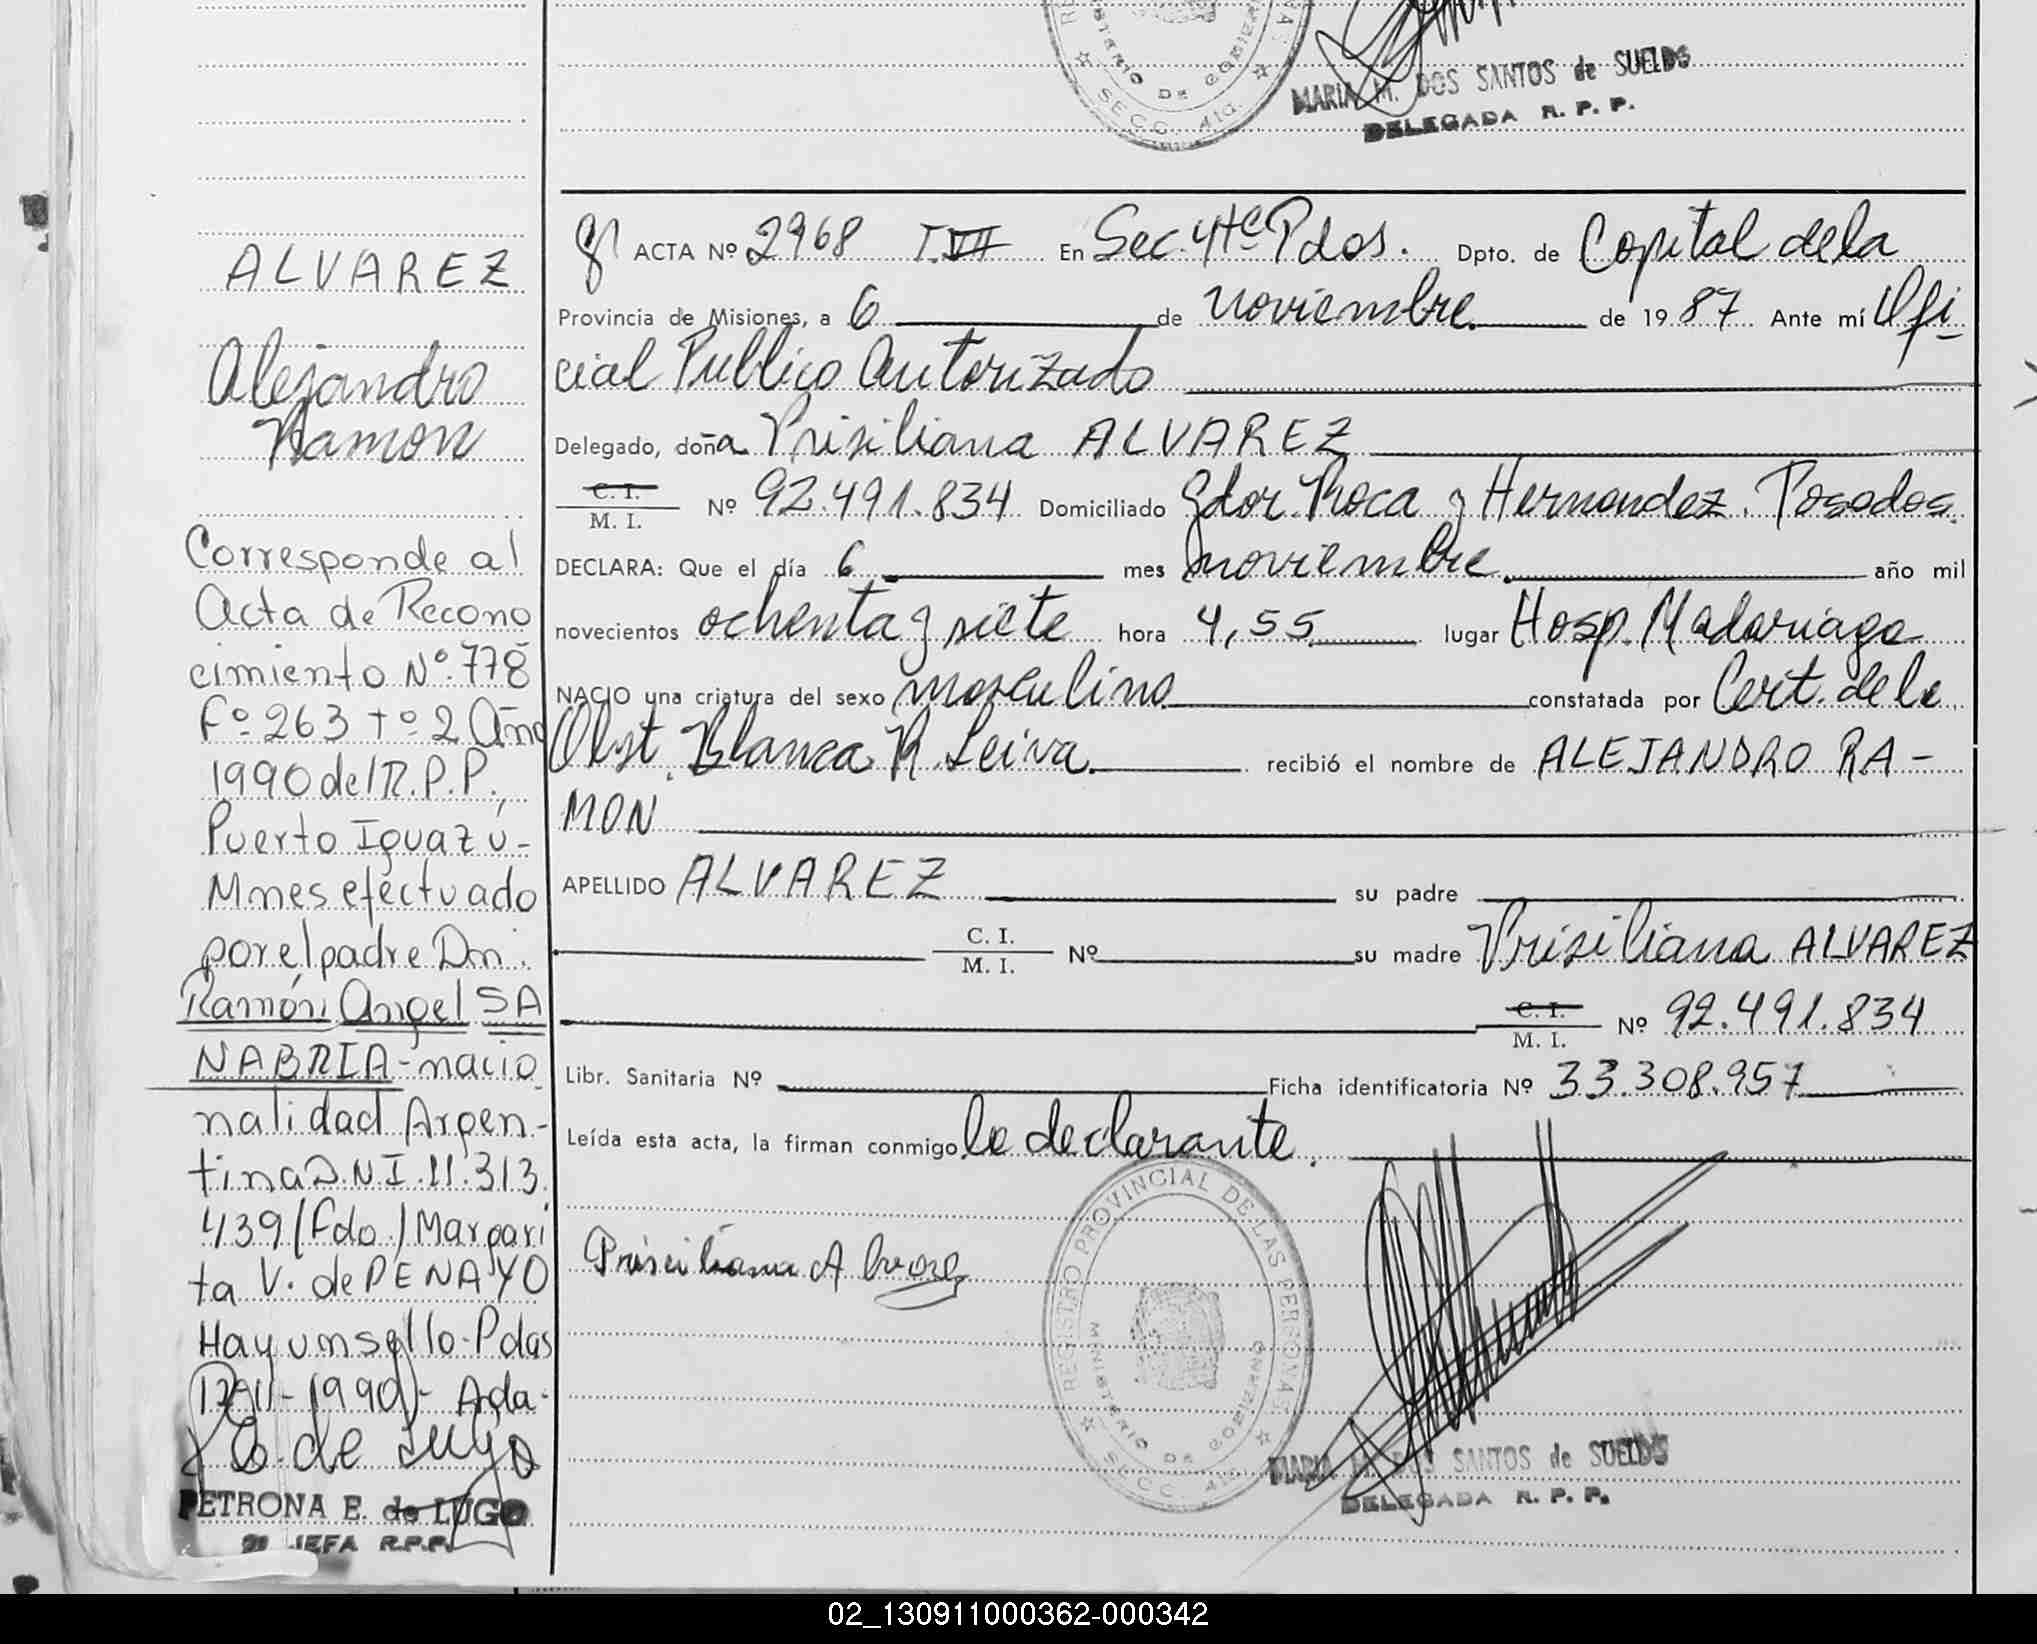 MARIA M. DOS SANTOS de SUELDO
DELEGADA R. P. P.
SECC. 4ta.
MINISTERIO DE GOBIERNO
ALVAREZ
Alejandro
Ramon
Corresponde al
Acta de Recono
cimiento Nº 778
Fº 263 tº 2 Año
1990 del R.P.P.,
Puerto Iguazú-
Mnes efectuado
por el padre Dn.
Ramón Angel SA
NABRIA-nacio
nalidad Argen-
tina D.N.I. 11.313.
439/Fdo./Margari
ta V. de PENAYO
Hay un sello-Pdas
12-11-1990- Ada-
de Lugo
PETRONA E. de LUGO
JEFA R.P.P.
ACTA Nº 2968 T.VII En Sec. 4ta Pdas. Dpto. de Capital de la
Provincia de Misiones, a 6 de noviembre de 1987 Ante mí Ofi-
cial Publico Autorizado
Delegado, doña Prisiliana ALVAREZ
C. I.
M. I. Nº 92.491.834 Domiciliado Gdor. Roca y Hernandez. Posadas.
DECLARA: Que el día 6 mes noviembre año mil
novecientos ochenta y siete hora 4,55 lugar Hosp. Madariaga
NACIO una criatura del sexo masculino constatada por Cert. de la
Obst. Blanca R. Leiva recibió el nombre de ALEJANDRO RA-
MON
APELLIDO ALVAREZ su padre
C. I.
M. I. Nº su madre Prisiliana ALVAREZ
C. I.
M. I. Nº 92.491.834
Libr. Sanitaria Nº Ficha identificatoria Nº 33.308.957
Leída esta acta, la firman conmigo la declarante.
Prisciliana Alvarez
REGISTRO PROVINCIAL DE LAS PERSONAS
MINISTERIO DE GOBIERNO
SECC. 4ta.
MARIA M. DOS SANTOS de SUELDO
DELEGADA R. P. P.
02_130911000362-000342